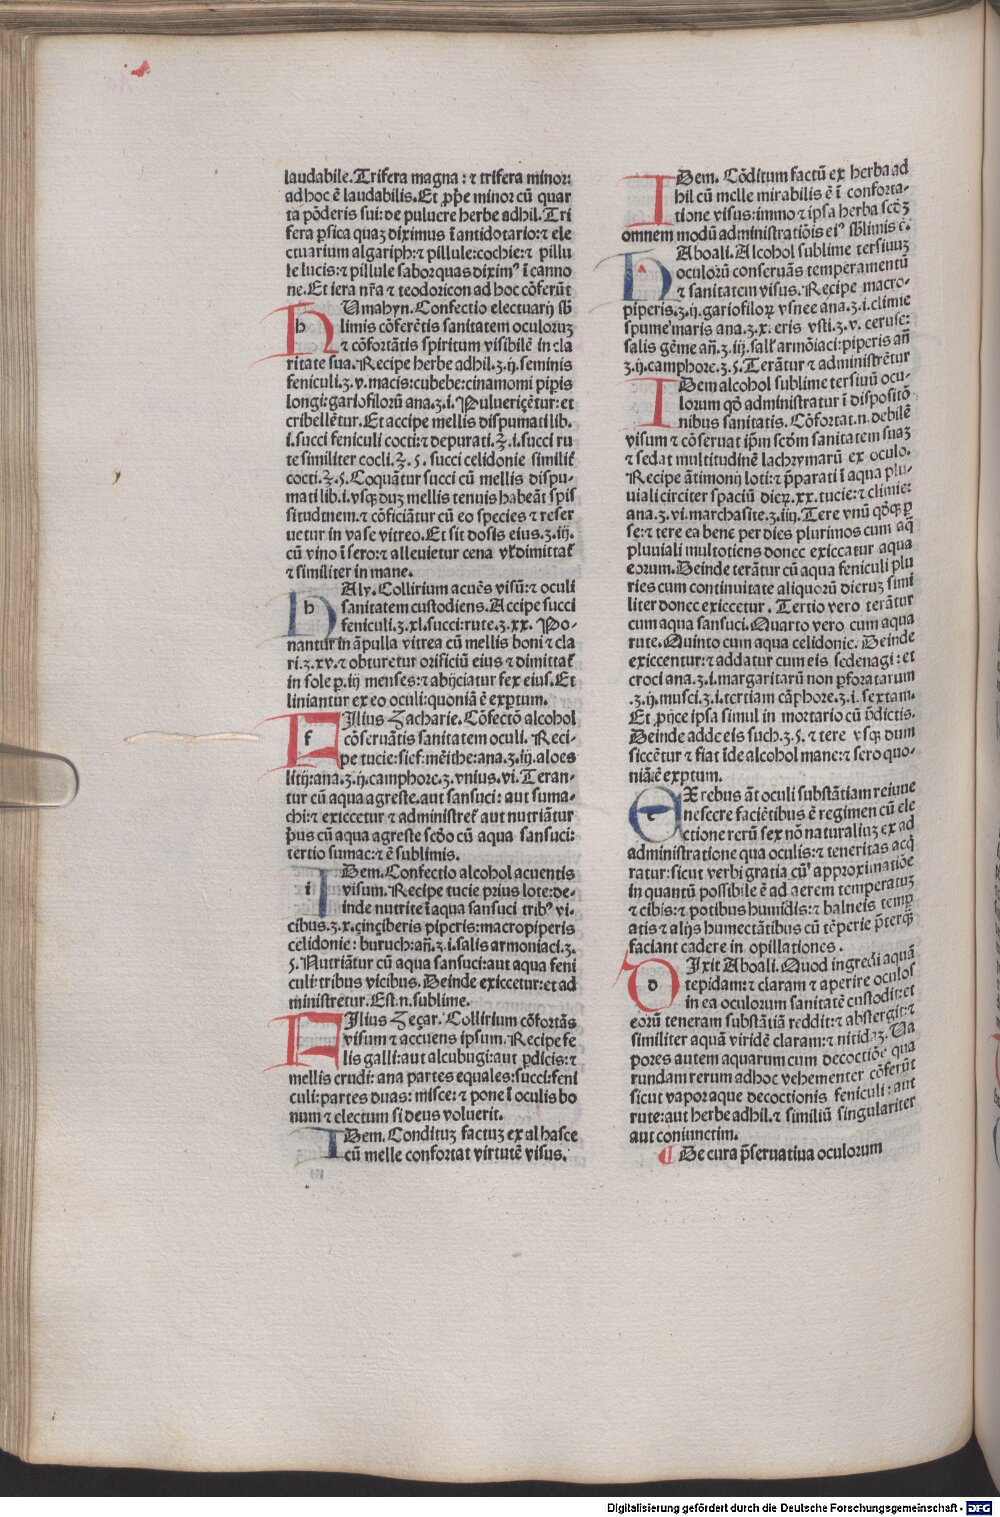 laudabile. Trifera magna: ⁊ trifera minor:
ad hoc ē laudabilis. Et ꝓp̄e minor cū quar
ta pōderis sui: de puluere herbe adhil. Tri
fera ꝑsica quaꝫ diximus ī antidotario: ⁊ ele
ctuarium algariph: ⁊ pillule: cochie: ⁊ pillu
le lucis: ⁊ pillule sabor quas diximꝰ ī canno
ne. Et iera nr̄a ⁊ teodoricon ad hoc cōferūt
h Umahyn. Confectio electuarij sb̄
limis cōferētis sanitatem oculoruꝫ
⁊ cōfortātis spiritum visibilē in cla
ritate sua. Recipe herbe adhil. ʒ. ij. seminis
feniculi. ʒ. v. macis: cubebe: cinamomi pip̄is
longi: gariofilorū ana. ʒ. i. Pulueriçētur: et
cribellētur. Et accipe mellis dispumati lib.
i. succi feniculi cocti: ⁊ depurati. ℥. i. succi ru
te similiter cocli. ℥. 5. succi celidonie similiť
cocti. ℥. 5. Coquātur succi cū mellis dispu-
mati lib. i. vsqꝫ duꝫ mellis tenuis habeāt spis
situdtnem. ⁊ cōficiātur cū eo species ⁊ reser
uetur in vase vitreo. Et sit dosis eius. ʒ. iij.
cū vino ī sero: ⁊ alleuietur cena vľ dimittať
⁊ similiter in mane.
h Aly. Collirium acuēs visū: ⁊ oculi
sanitatem custodiens. Accipe succi
feniculi. ʒ. xl. succi: rute. ʒ. xx. Po-
nantur in āpulla vitrea cū mellis boni ⁊ cla
ri. ʒ. xv. ⁊ obturetur orificiū eius ⁊ dimittať
in sole ꝑ. iij menses: ⁊ abijciatur fex eius. Et
liniantur ex eo oculi: quoniā ē exꝑtum.
f Ilius Zacharie. Cōfectō alcohol
cōseruātis sanitatem oculi. Reci-
pe tucie: sief: mēithe: ana. ʒ. iij. aloes
litij: ana. ʒ. ij. camphore. ʒ. vnius. vi. Teran-
tur cū aqua agreste. aut sansuci: aut suma-
chi: ⁊ exiccetur ⁊ administreť aut nutriātur
p̄us cū aqua agreste scd̄o cū aqua sansuci:
tertio sumac: ⁊ ē sublimis.
i Dem. Confectio alcohol acuentis
visum. Recipe tucie prius lote: de-
inde nutrite ī aqua sansuci tribꝰ vi-
cibus. ʒ. x. çinçiberis piperis: macropiperis
celidonie: buruch: an̄. ʒ. i. salis armoniaci. ʒ.
5. Nutriātur cū aqua sansuci: aut aqua feni
culi: tribus vicibus. Deinde exiccetur: et ad
ministretur. Est. n. sublime.
Ilius Zeçar. Collirium cōfortās
visum ⁊ accuens ipsum. Recipe fe
lis galli: aut alcubugi: aut ꝑdicis: ⁊
mellis crudi: ana partes equales: succi: feni
culi: partes duas: misce: ⁊ pone ī oculis bo
num ⁊ electum si deus voluerit.
Dem. Condituꝫ factuꝫ ex alhasce
cū melle confortat virtutē visus.
Dem. Cōditum factū ex herba ad
hil cū melle mirabilis ē ī conforta-
tione visus: immo ⁊ ipsa herba scd̄ꝫ
omnem modū administratiōis eiꝰ sb̄limis ē.
Aboali. Alcohol sublime tersiuuꝫ
oculorū conseruās temperamentū
⁊ sanitatem visus. Recipe macro-
piperis. ʒ. ij. gariofiloꝝ vsnee ana. ʒ. i. climie
spume maris ana. ʒ. x. eris vsti. ʒ. v. ceruse:
salis gēme an̄. ʒ. iij. saľ armōiaci: piperis an̄
ʒ. ij. camphore. ʒ. 5. Terātur ⁊ administrētur
Dem alcohol sublime tersiuū ocu-
lorum qd̄ administratur ī dispositō
nibus sanitatis. Cōfortat. n. debilē
visum ⁊ cōseruat ip̄m scd̄m sanitatem suaꝫ
⁊ sedat multitudinē lachrymarū ex oculo.
Recipe ātimonij loti: ⁊ p̄parati ī aqua plu-
uiali circiter spaciū dieꝝ. xx. tucie: ⁊ climie:
ana. ʒ. vi. marchasite. ʒ. iiij. Tere vnū qd̄qꝫ ꝑ
se: ⁊ tere ea bene per dies plurimos cum aq̄
pluuiali multotiens donec exiccatur aqua
eorum. Deinde terātur cū aqua feniculi plu
ries cum continuitate aliquorū dieruꝫ simi
liter donec exiccetur. Tertio vero terātur
cum aqua sansuci. Quarto vero cum aqua
rute. Quinto cum aqua celidonie. Deinde
exiccentur: ⁊ addatur cum eis sedenagi: et
croci ana. ʒ. i. margaritarū non ꝑforatarum
. ʒ. ij. musci. ʒ. i. tertiam cāphore. ʒ. i. sextam.
Et ꝓijce ipsa simul in mortario cū p̄dictis.
Deinde adde eis such. ʒ. 5. ⁊ tere vsqꝫ dum
siccētur ⁊ fiat īde alcohol mane: ⁊ sero quo-
niā: ē exꝑtum.
e X rebus āt oculi substātiam reiuue
nescere faciētibus ē regimen cū ele
ctione rerū sex nō naturaliuꝫ ex ad
administratione qua oculis: ⁊ teneritas acq̄
ratur: sicut verbi gratia cū approximatiōe
in quantū possibile ē ad aerem temperatuꝫ
⁊ cibis: ⁊ potibus humidis: ⁊ balneis temꝑ
atis ⁊ alijs humectātibus cū tēperie p̄terqꝫ
faciant cadere in opillationes.
o Ixit Aboali. Quod ingredi aquā
tepidam: ⁊ claram ⁊ aperire oculos
in ea oculorum sanitatē custodit: et
eorū teneram substātiā reddit: ⁊ abstergit: ⁊
similiter aquā viridē claram: ⁊ nitidaꝫ. Ua
pores autem aquarum cum decoctiōe qua
rundam rerum adhoc vehementer cōferūt
sicut vapor aque decoctionis feniculi: aut
rute: aut herbe adhil. ⁊ similiū singulariter
aut coniunctim.
¶ De cura p̄seruatiua oculorum
Digitalisierung gefördert durch die Deutsche Forschungsgemeinschaft - DFG